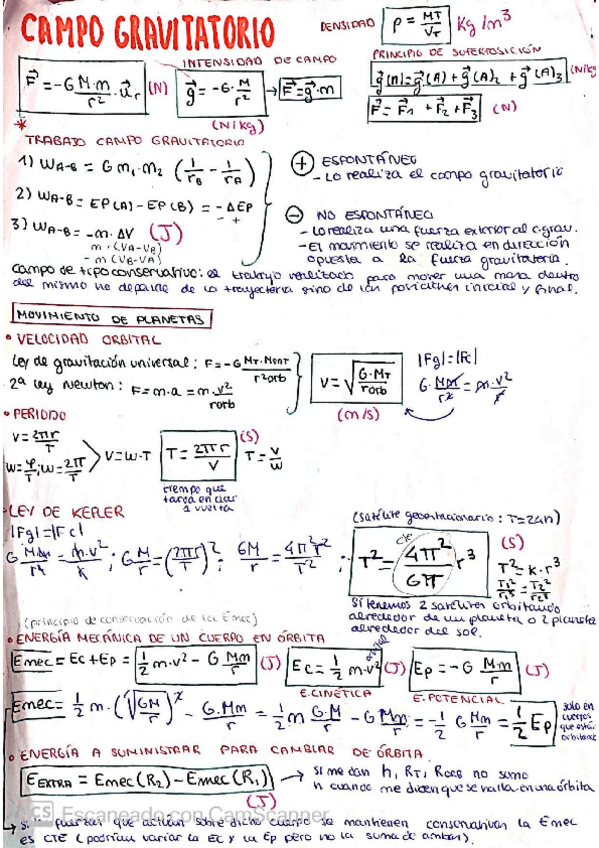 CAMPO GRAVITATORIO
DENSIDAD ρ = MT/VT Kg/m³
INTENSIDAD DE CAMPO
PRINCIPIO DE SUPERPOSICIÓN
F⃗ = -G M·m/r² · u⃗r (N)
g⃗ = -G · M/r² → F⃗ = g⃗·m
(N/kg)
g⃗(A) = g⃗(A)₁ + g⃗(A)₂ + g⃗(A)₃ (N/kg)
F⃗ = F⃗₁ + F⃗₂ + F⃗₃ (N)
* TRABAJO CAMPO GRAVITATORIO
1) WA-B = G m₁·m₂ (1/rB - 1/rA)
2) WA-B = EP(A) - EP(B) = -ΔEp
- +
3) WA-B = -m·ΔV (J)
m·(VA-VB)
-m·(VB-VA)
+ ESPONTÁNEO
- Lo realiza el campo gravitatorio
- NO ESPONTÁNEO
- Lo realiza una fuerza exterior al c.grav.
- El movimiento se realiza en dirección
opuesta a la fuerza gravitatoria.
Campo de tipo conservativo: el trabajo realizado para mover una masa dentro
del mismo no depende de la trayectoria sino de las posiciones inicial y final.
MOVIMIENTO DE PLANETAS
• VELOCIDAD ORBITAL
Ley de gravitación universal: F = -G MT·MSAT/r²orb
2ª Ley Newton: F = m·a = m·v²/rorb
v = √(G·MT/rorb)
(m/s)
|Fg| = |Fc|
G·Mm/r² = m·v²/r
• PERIODO
v = 2πr/T
w = φ/T; w = 2π/T
v = w·T
T = 2πr/v (s)
T = v/w
tiempo que
tarda en dar
1 vuelta
• LEY DE KEPLER
|Fg| = |Fc|
(satélite geoestacionario: T=24h)
G Mm/r² = m·v²/r; G M/r = (2πr/T)²; GM/r = 4π²r²/T²;
cte
T² = 4π²/GM r³
(s)
T² = K·r³
T₁²/r₁³ = T₂²/r₂³
Si tenemos 2 satélites orbitando
alrededor de un planeta o 2 planetas
alrededor del sol.
(principio de conservación de la Emec)
• ENERGÍA MECÁNICA DE UN CUERPO EN ÓRBITA
Emec = Ec + Ep = 1/2 m·v² - G Mm/r (J)
Ec = 1/2 m·v² orbital (J)
Ep = -G M·m/r (J)
E.CINÉTICA
E.POTENCIAL
Emec = 1/2 m·(√(GM/r))² - G·Mm/r = 1/2 m G·M/r - G Mm/r = -1/2 G Mm/r = 1/2 Ep
solo en
cuerpos
que están
orbitando
• ENERGÍA A SUMINISTRAR PARA CAMBIAR DE ÓRBITA
EEXTRA = Emec(R₂) - Emec(R₁)
(J)
→ Si me dan h, RT, RORB no sumo
h cuando me dicen que se halla en una órbita
CS Escaneado con CamScanner
fuerzas que actúan sobre dicho cuerpo se mantienen conservativas la Emec
es CTE (podrían variar la Ec y la Ep pero no la suma de ambas).